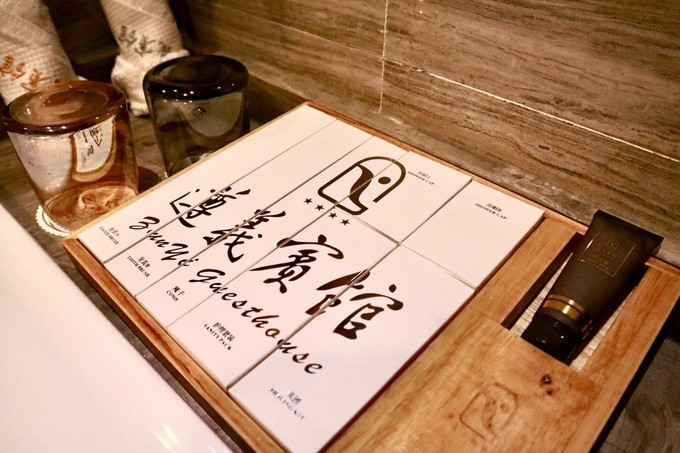 遵義賓館
ZunYi Guesthouse
牙具A
TOOTH BRUSH
牙具B
TOOTH BRUSH
梳子
COMB
护理套装
VANITY PACK
SHAVING KIT
浴帽A
SHOWER CAP
浴帽B
SHOWER CAP